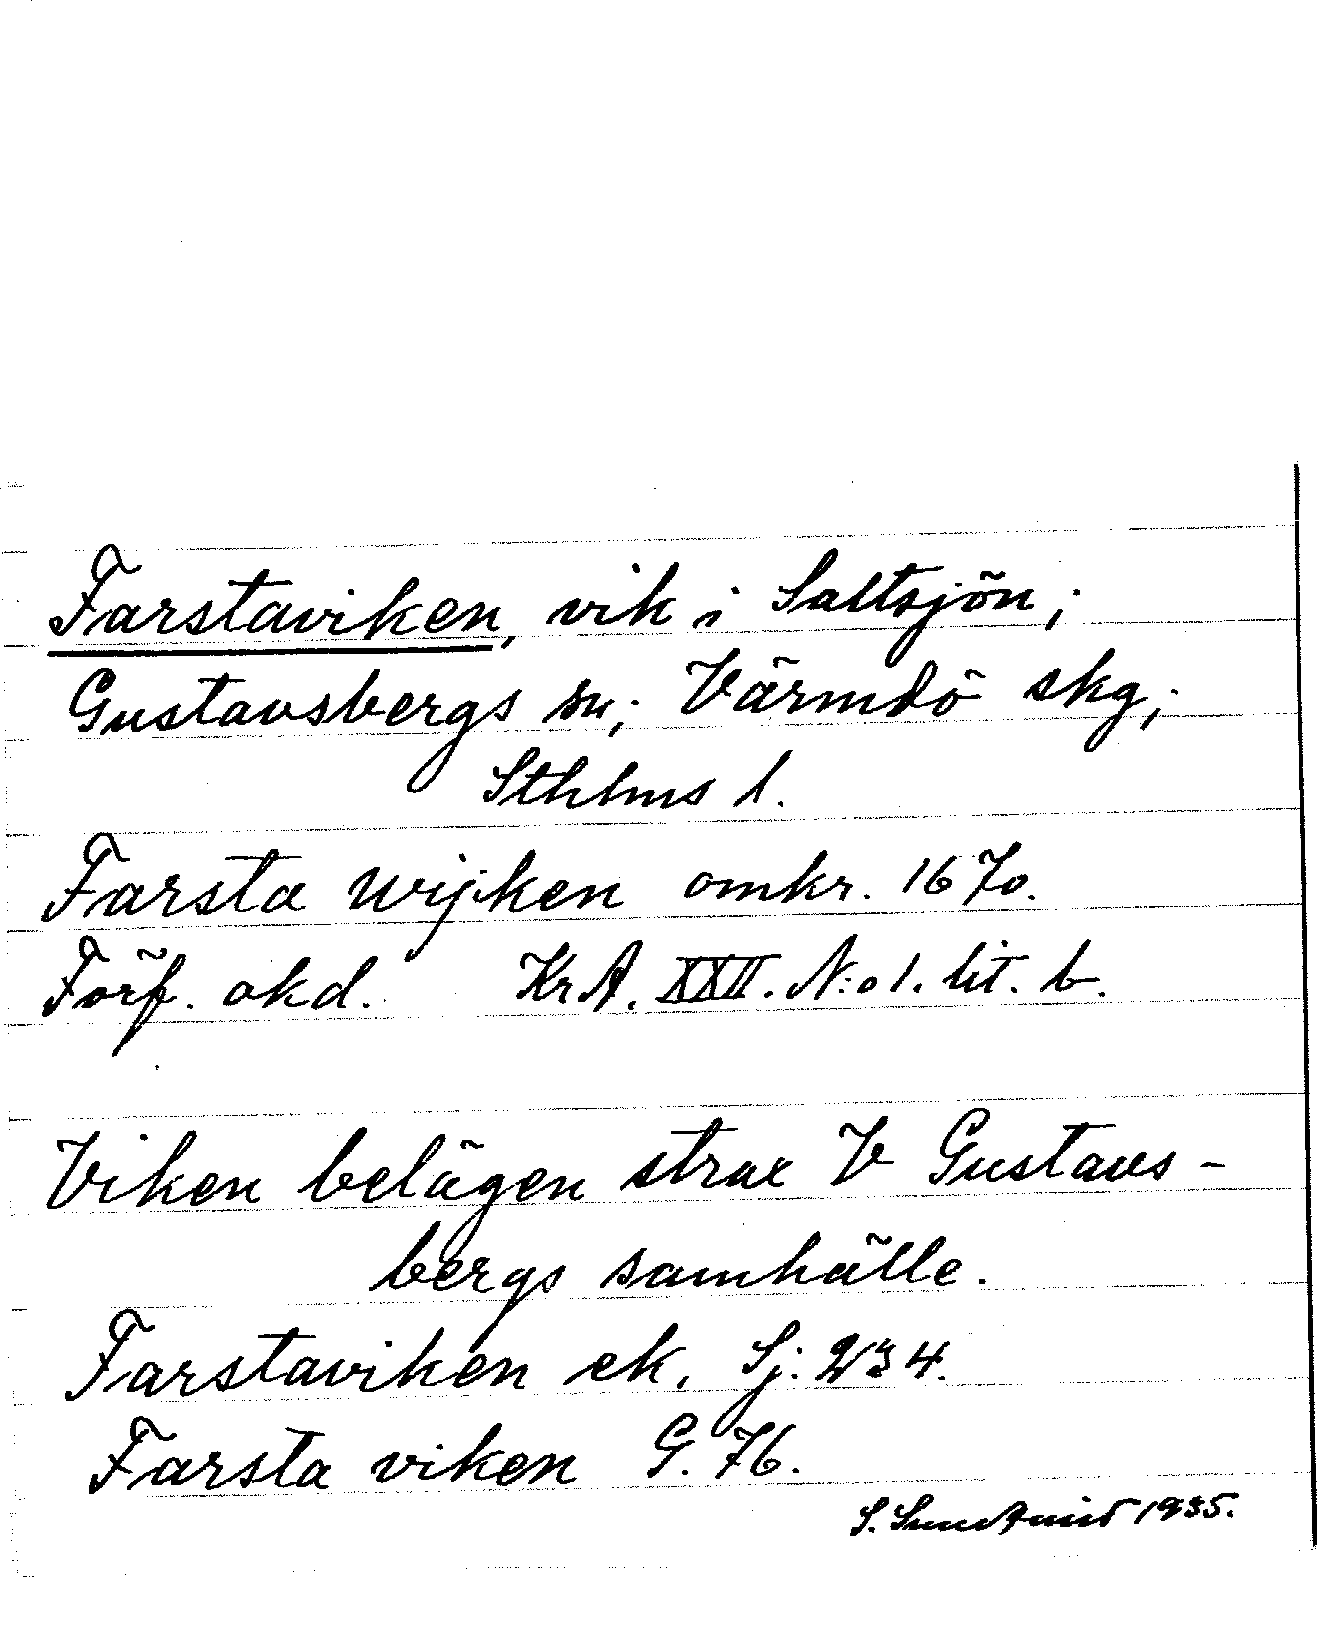 Farstaviken, vik i Saltsjön;
Gustavsbergs sn; Värmdö skg;
Sthlms l.
Farsta wijken omkr. 1670.
Förf. okd. KrA. XXII. N:o 1. lit. b.
Viken belägen strax V Gustavs-
bergs samhälle.
Farstaviken ek. Sj. 234.
Farsta viken G. 76.
S. Sundqvist 1935.